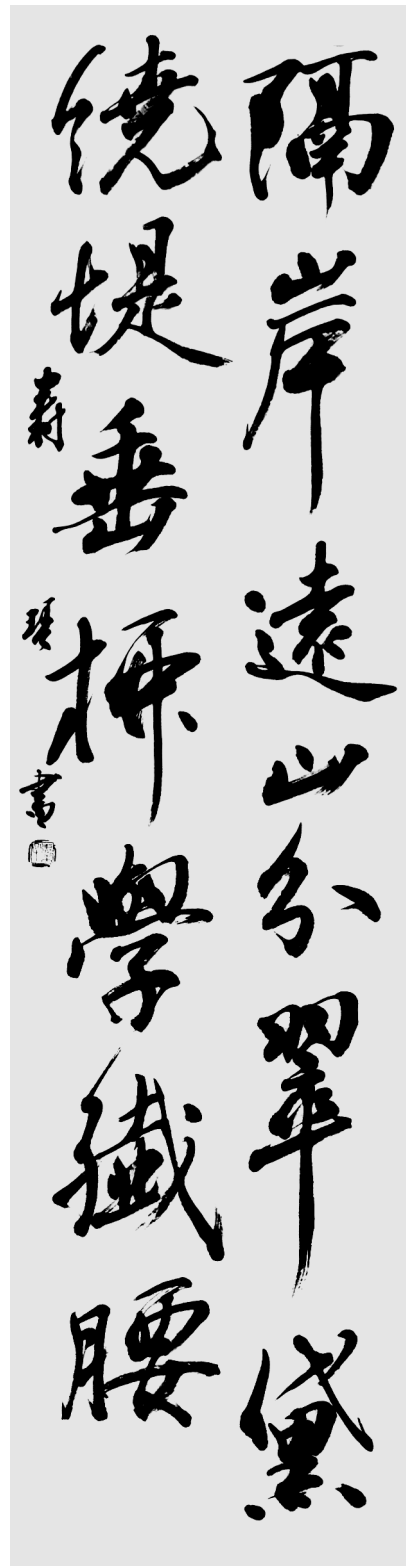 隔岸遠山分翠黛
繞堤垂柳學纖腰
壽書